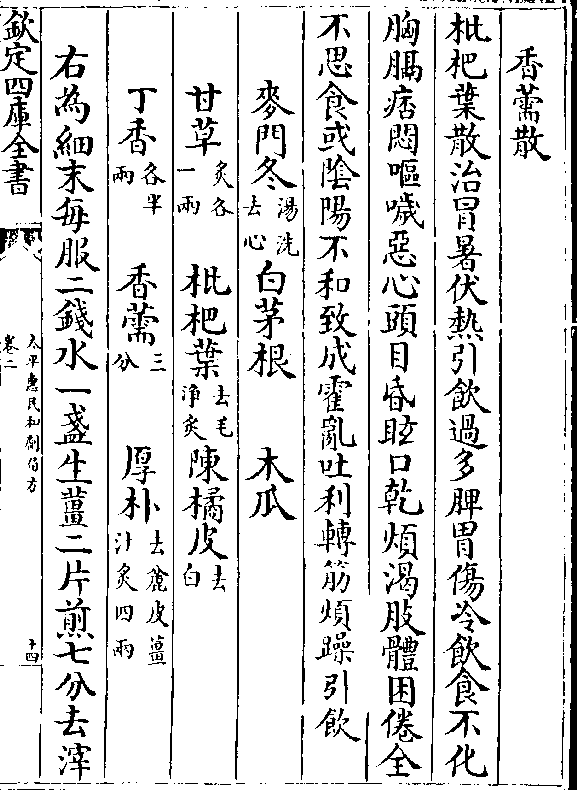 香薷散
枇杷葉散治冒暑伏熱引飲過多脾胃傷冷飲食不化
胸膈痞悶嘔噦惡心頭目昏眩口乾煩渴肢體困倦全
不思食或陰陽不和致成霍亂吐利轉筋煩躁引飲
麥門冬湯洗去心 白茅根 木瓜
甘草炙各一兩 枇杷葉去毛浄炙 陳橘皮去白
丁香各半兩 香薷三分 厚朴去麄皮薑汁炙四兩
右為細末每服二錢水一盞生薑二片煎七分去滓
欽定四庫全書
太平惠民和劑局方
卷二
十四